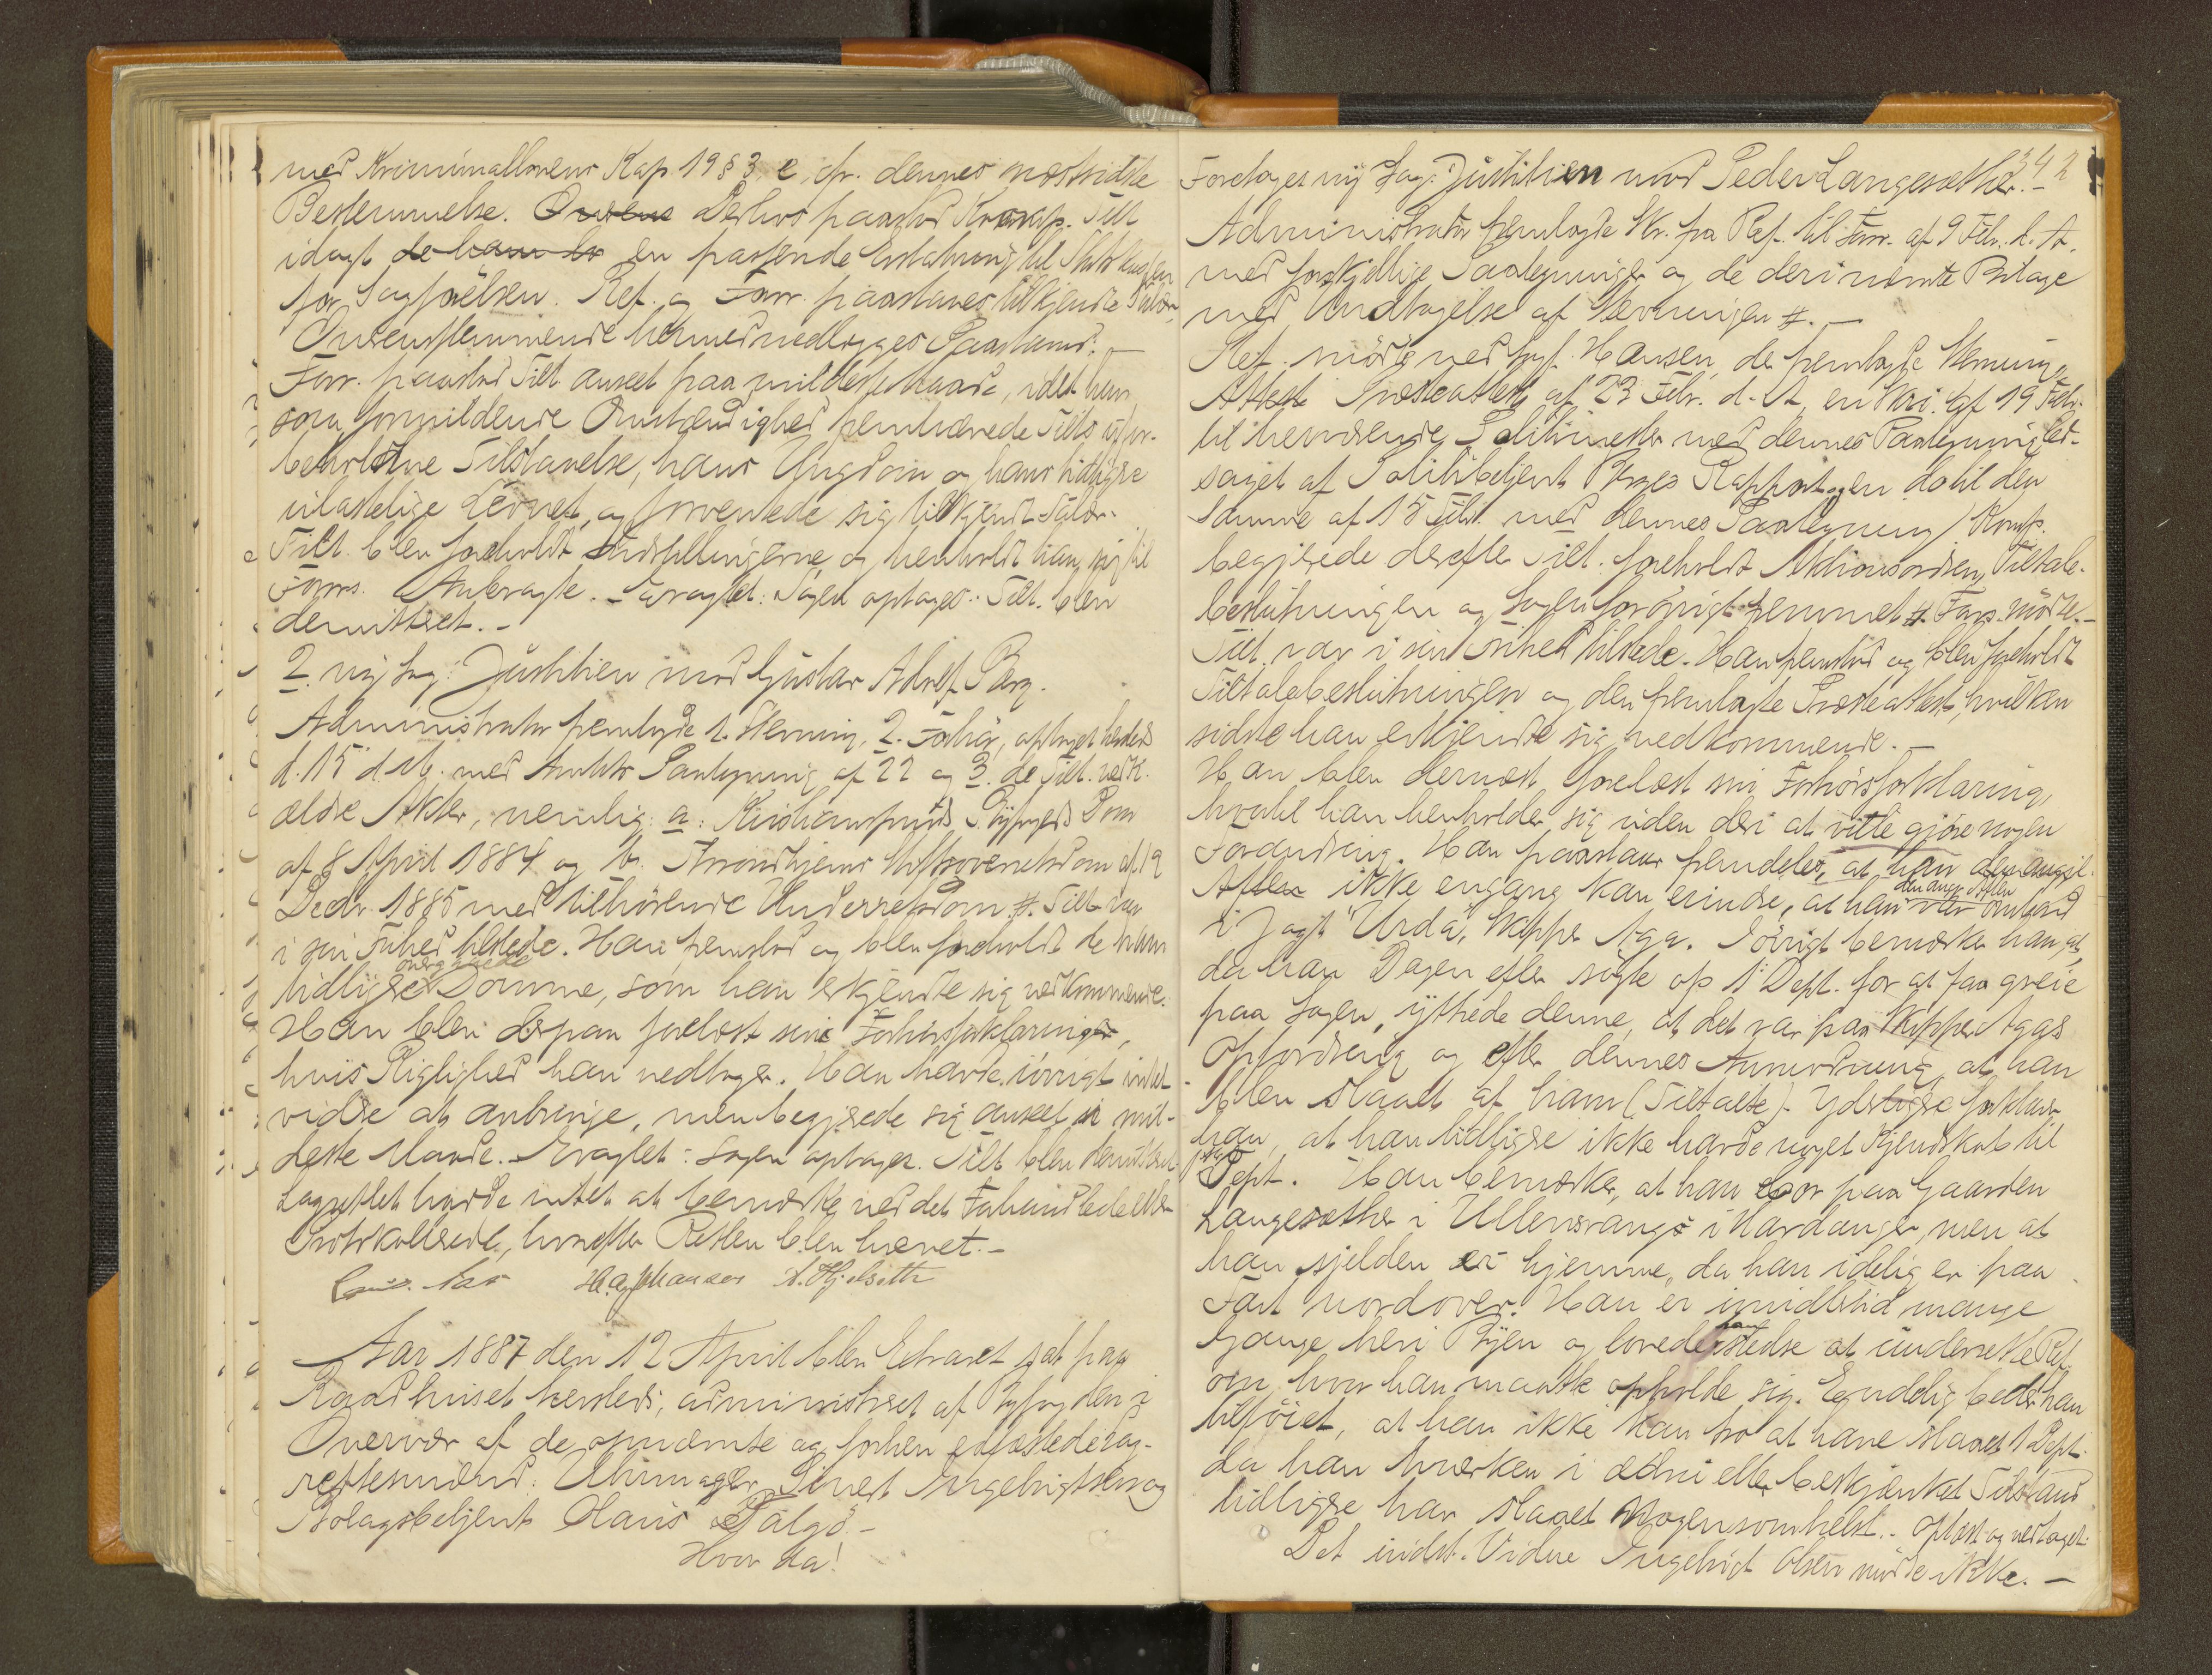 med Kriminallovens Kap 19 § 3 e, cfr. dennes næstsidste
Bestemmelse. Derhos paastod Komp. Tilt.
idømt en passende Erstatning til Statskassen
for Sagførelsen. Ref. og Forsv. paastaaes tilkjendte Salær.
Overensstemmende hermed nedlægges Paastand. —
Forsv. paastod Tilt. anseet paa mildeste Maade, idet han
som formildende Omstændighed fremhævede Tilts. ufor-
beholdne Tilstaaelse, hans Ungdom og hans tidligere
ulastelige Levnet, og forventede sig tilkjendt Salær.
Tilt. blev foreholdt Fremstillingerne og henholdt han sig til
Forsvs. Anbragte. – Eragtet: Sagen optages. Tilt. blev
demitteret. –
2. ny Sag: Justitien mod Gustav Adolf Berg.
Administrator fremlagde 1. Stevning, 2. Forhør, optaget herst.
d. 15 d. M. med Amtets Paategning af 22 og 3. de Tilt. vedk.
ældre Akter, nemlig: a: Kristiansunds Byfogeds Dom
af 8 April 1884 og b. Trondhjems Stiftsoverretsdom af 19
Decbr. 1885 med tilhørende Underretsdom #. Tilt. var
i sin Frihed tilstede. Han fremstod og blev foreholdt de ham
tidligere overgaaede Domme, som han erkjendte sig vedkommende.
Han blev derpaa forelæst sine Forhørsforklaringer,
hvis Rigtighed han vedtager. Han havde iøvrigt intet
videre at anbringe, men begjerede sig anseet paa mil-
deste Maade. Eragtet: Sagen optages. Tilt. blev demitteret.
Lagrettet havde intet at bemærke ved det Forhandlede eller
Protokollerede, hvorefter Retten blev hævet. –
A. Hjelseth
Aar 1887 den 12 April blev Extraret sat paa
Raadhuset hersteds, administreret af Byfogden i
Overvær af de opnævnte og forhen edfæstede Lag-
rettesmænd: Uhrmager Sivert Ingebrigtsen og
Bolagsbetjent Hans Talgø. –
Hvor da!
342
Foretages ny Sag: Justitien mod Peder Langesæther. –
Administrator fremlagde Skr. fra Ref. til Forsv. af 9 Febr. d. A.
med forskjellige Paategninger og de deri nævnte Bilage
med Undtagelse af Stevningen #. –
Ref. mødte ved Sagf. Hansen, der fremlagde Stevning,
Præsteattest af 23 Febr. d. A., en Skri. af 19 Febr.
til herværende Politimester med dennes Paategning, led-
saget af Politibetjent Rapport, en do til den
samme af 15 Febr. med dennes Paategning / Komp.
begjærede derefter Tilt. foreholdt Aktionsordren, Tiltale-
beslutningen og Sagen forøvrigt fremmet #. Forsv. mødte. –
Tilt. var i sin Frihed tilstede. Han fremstod og blev foreholdt
Tiltalebeslutningen og den fremlagte Præsteattest, hvilken
sidste han erkjendte sig vedkommende. –
Han blev dernæst forelæst sin Forhørsforklaring,
hvortil han henholder sig uden deri at ville gjøre nogen
Forandring. Han paastaar fremdeles, at han
ikke engang kan erindre, at han den ang. Aften var ombord
i Jagt "Urda", Skipper Aga. Iøvrigt bemærker han, at,
da han Dagen efter søgte op 1ste Dept. for at faa greie
paa Sagen, yttrede denne, at det var paa Skipper Agas
Opfordring og efter dennes Anmodning, at han
blev slaaet af ham (Tiltalte). Yderligere forklarer
han, at han tidligere ikke havde noget Kjendskab til
Dept. Han bemærker, at han bor paa Gaarden
Langesæther i Ullensvangs i Hardanger, men at
han sjelden er hjemme, da han idelig er paa
Fart nordover. Han er imidlertid mange
Gange her i Byen og lovede han stedse at underrette Ret.
om hvor han maatte opholde sig. Endelig beder han
tilføiet, at han ikke kan tro at have slaaet 1 Dept.
da han hverken i ædru eller beskjænket Tilstand
tidligere har slaaet Nogensomhelst. – Oplæst og vedtaget.
Det indst. Vidne Ingebrigt Olsen mødte ikke. –